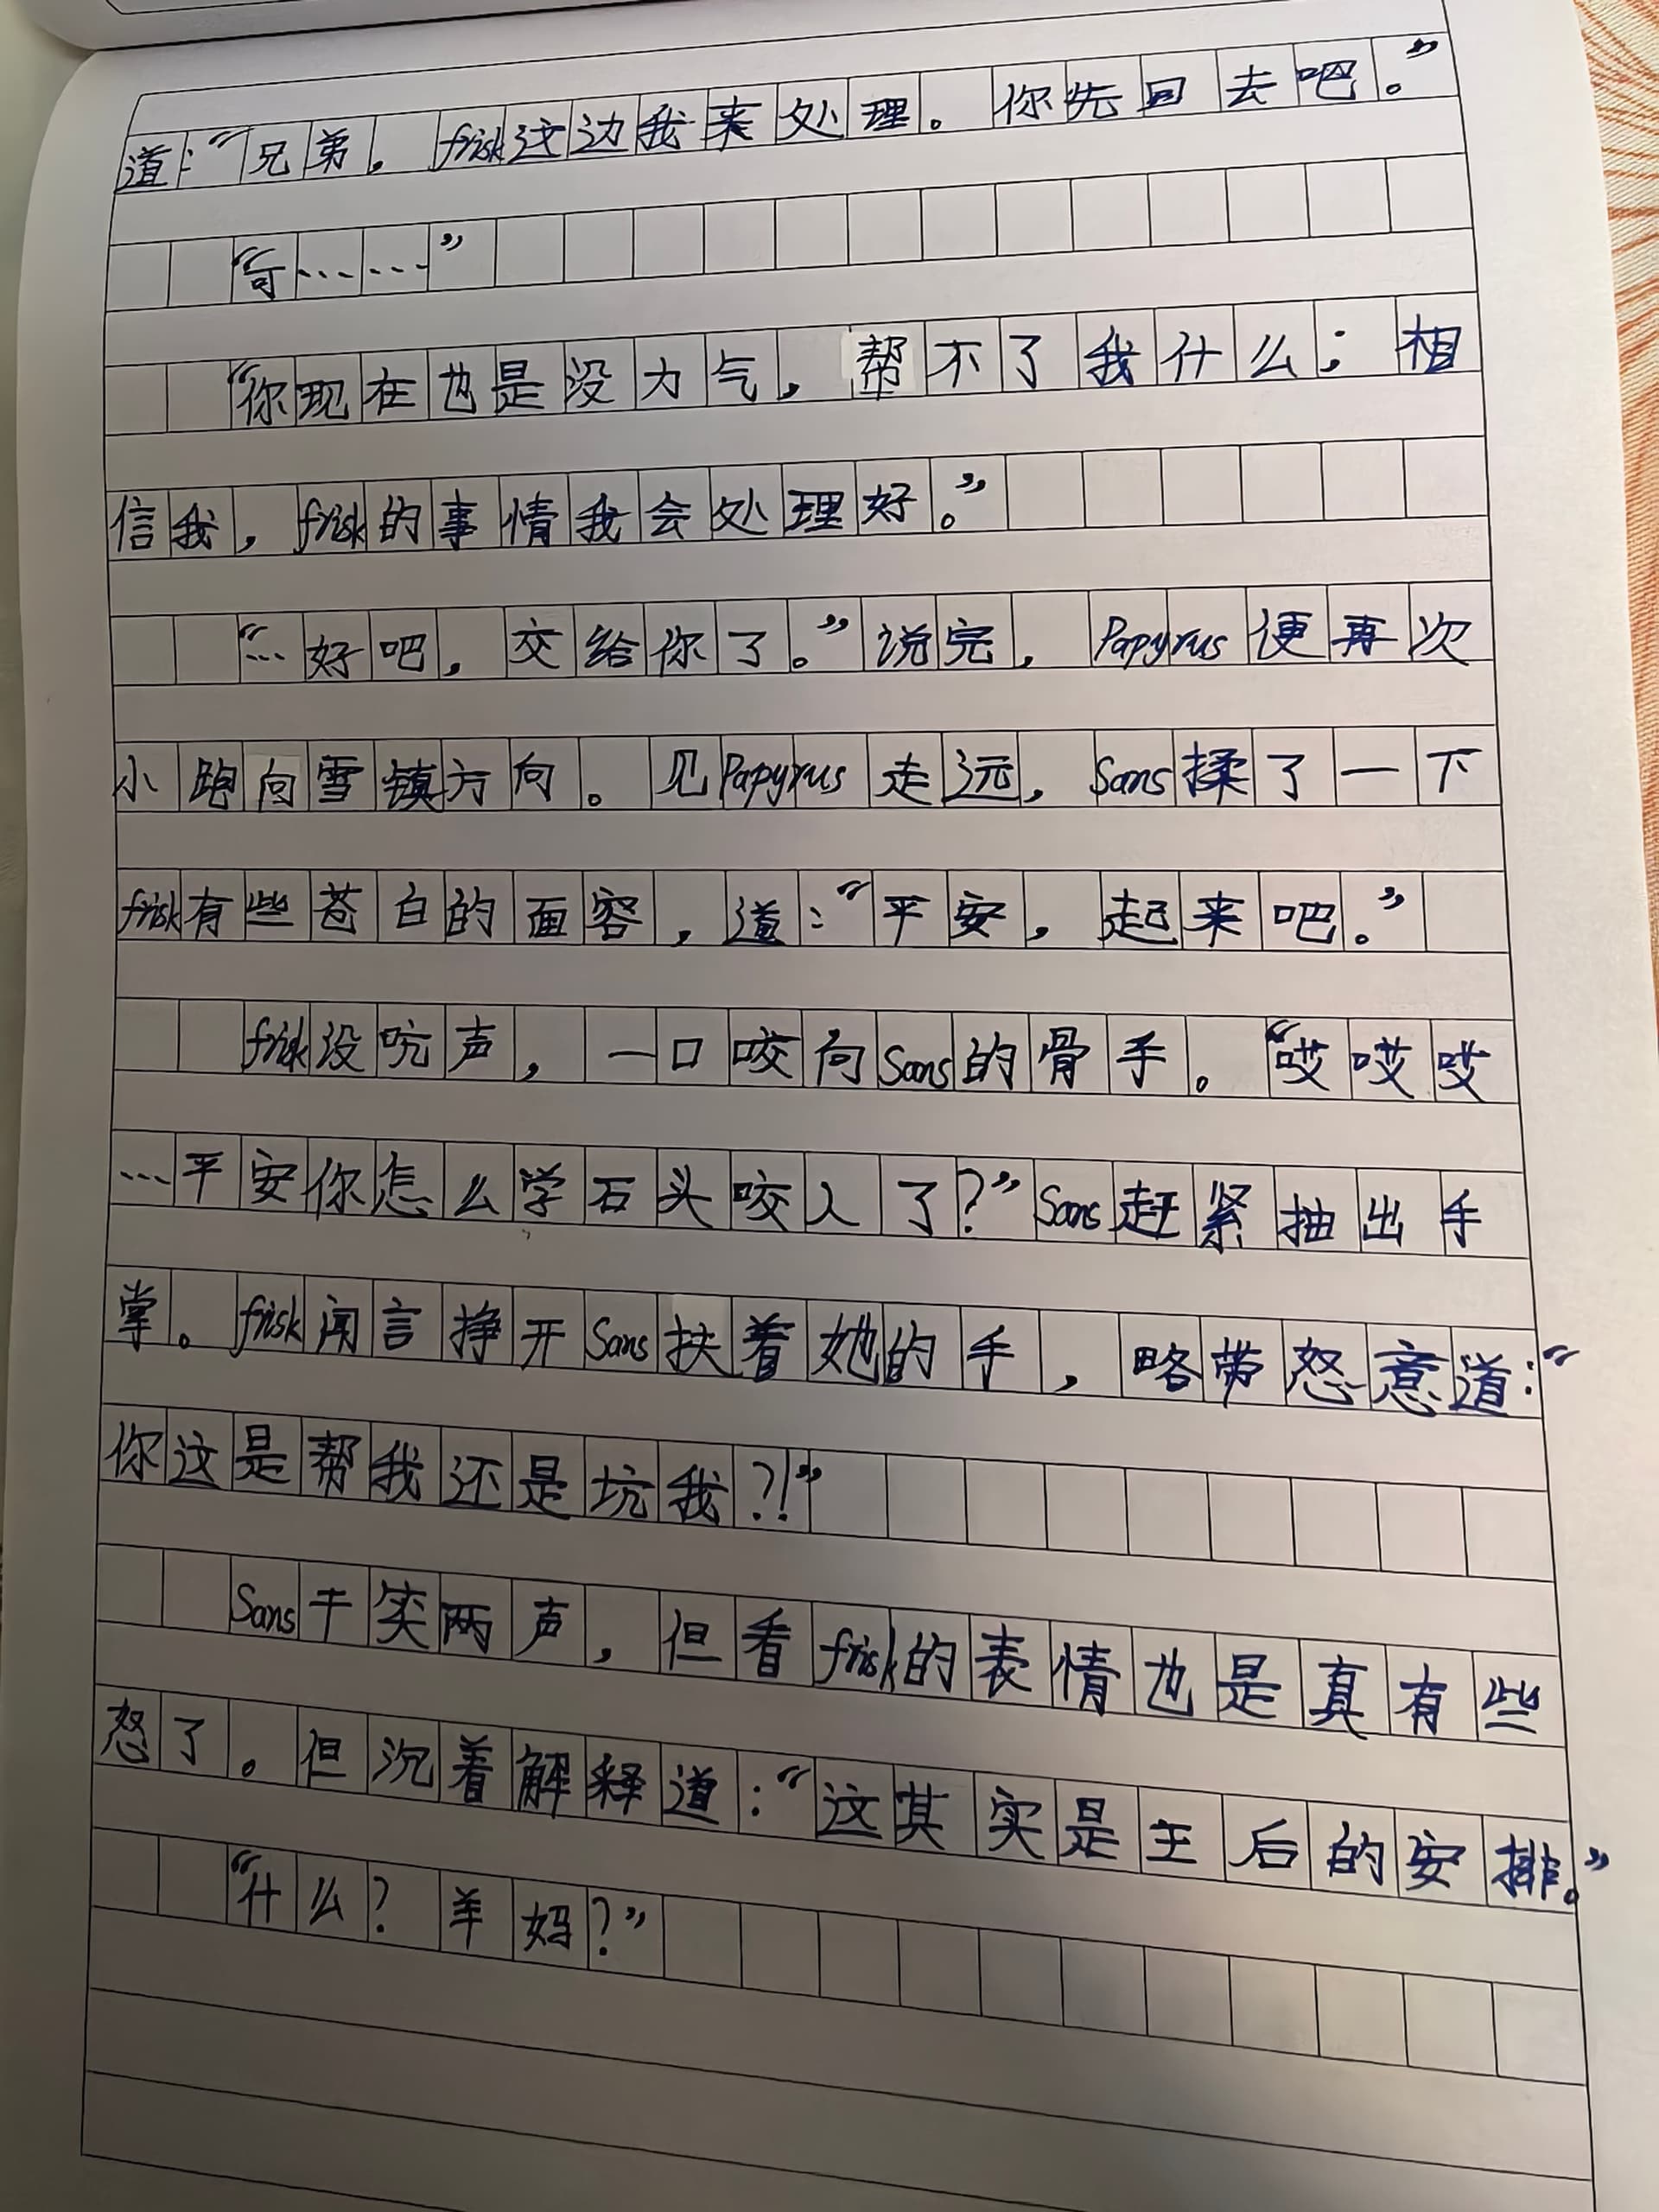 道：“兄弟，frisk这边我来处理。你先回去吧。”
“可……”
“你现在也是没力气，帮不了我什么；相
信我，frisk的事情我会处理好。”
“…好吧，交给你了。”说完，Papyrus便再次
小跑向雪镇方向。见Papyrus走远，Sans揉了一下
frisk有些苍白的面容，道：“平安，起来吧。”
frisk没吭声，一口咬向Sans的骨手。“哎哎哎
…平安你怎么学石头咬人了？”Sans赶紧抽出手
掌。frisk闻言挣开Sans扶着她的手，略带怒意道：“
你这是帮我还是坑我？！”
Sans干笑两声，但看frisk的表情也是真有些
怒了。但沉着解释道：“这其实是王后的安排。”
“什么？羊妈？”